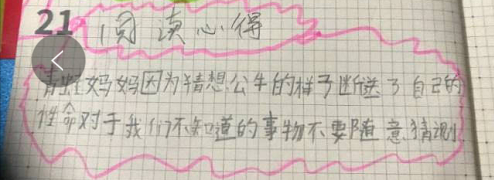 21
阅读心得
青蛙妈妈因为猜想公牛的样子断送了自己的
性命对于我们不知道的事物不要随意猜测